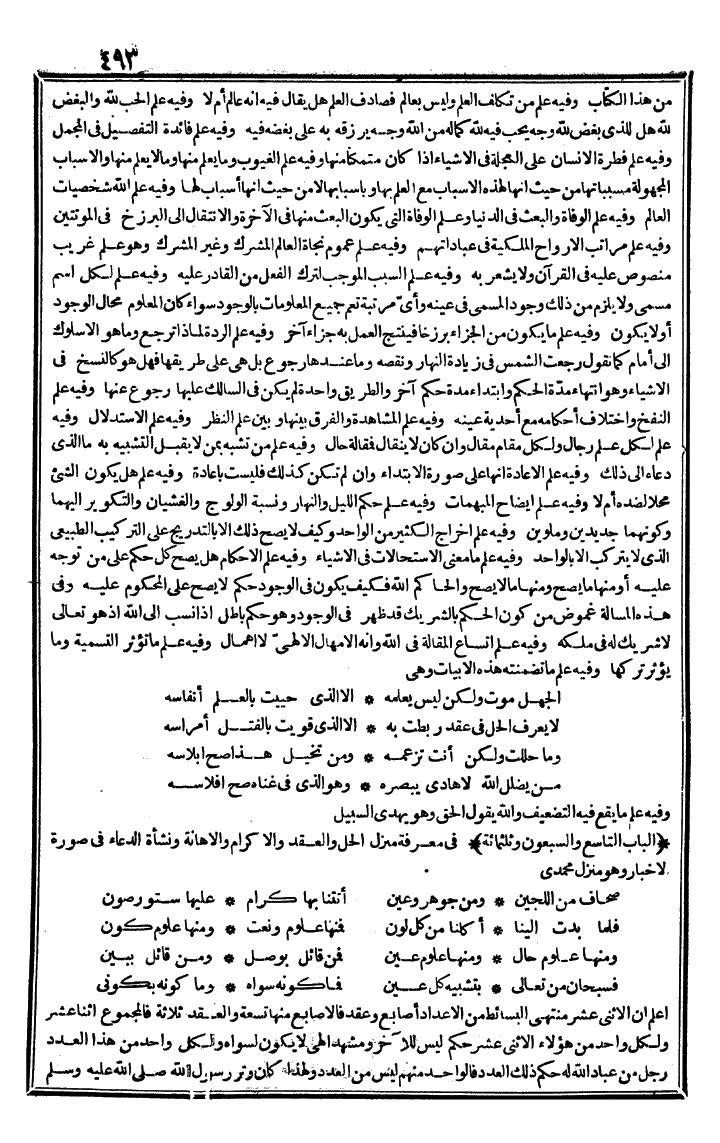 ٤٩٣
من هذا الكتاب وفيه علم من تكلف العلم وليس بعالم فصادف العلم هل يقال فيه انه عالم أم لا وفيه علم الحب لله والبغض
لله هل للذى بغض لله وجه يحب فيه لله كماله من الله وجه يرزقه به على بغضه فيه وفيه علم فائدة التفصيل فى المجمل
وفيه علم فطرة الانسان على العجلة فى الاشياء اذا كان متمكنا منها وفيه علم الغيوب وما يعلم منها ومالا يعلم منها والاسباب
المجهولة مسبباتها من حيث انها لهذه الاسباب مع العلم بها وباسبابها لا من حيث انها أسباب لها وفيه علم الله شخصيات
العالم وفيه علم الوفاة والبعث فى الدنيا وعلم الوفاة التى يكون البعث منها فى الآخرة والانتقال الى البرزخ فى الموتتين
وفيه علم مراتب الارواح الملكية فى عباداتهم وفيه علم عموم نجاة العالم المشرك وغير المشرك وهو علم غريب
منصوص عليه فى القرآن ولا يشعر به وفيه علم السبب الموجب لترك الفعل من القادر عليه وفيه علم لكل اسم
مسمى ولا يلزم من ذلك وجود المسمى فى عينه وأىّ مرتبة تعم جميع المعلومات بالوجود سواء كان المعلوم محال الوجود
أولا يكون وفيه علم ما يكون من الجزاء برزخا فينتج العمل به جزاء آخر وفيه علم الردة لماذا ترجع وما هو الاسلوك
الى أمام كما نقول رجعت الشمس فى زيادة النهار ونقصه وما عندها رجوع بل هى على طريقها فهل هو كالنسخ فى
الاشياء وهو انتهاء مدّة الحكم وابتداء مدة حكم آخر والطريق واحدة لم يكن فى السالك عليها رجوع عنها وفيه علم
النفخ واختلاف أحكامه مع أحدية عينه وفيه علم المشاهدة والفرق بينها وبين علم النظر وفيه علم الاستدلال وفيه
علم لكل علم رجال ولكل مقام مقال وان كان لا ينقال فقالة حال وفيه علم من تشبه بمن لا يقبل التشبيه به ما الذى
دعاه الى ذلك وفيه علم الاعادة انها على صورة الابتداء وان لم تكن كذلك فليست باعادة وفيه علم هل يكون الشئ
محلا لضده أم لا وفيه علم ايضاح المبهمات وفيه علم حكم الليل والنهار ونسبة الولوج والغشيان والتكوير اليهما
وكونهما جديدين وملوين وفيه علم اخراج الكثير من الواحد وكيف لا يصح ذلك الا بالتدريج على التركيب الطبيعى
الذى لا يتركب الا بالواحد وفيه علم ما معنى الاستحالات فى الاشياء وفيه علم الاحكام هل يصح كل حكم على من توجه
عليه أو منها ما يصح ومنها ما لا يصح والحاكم الله فكيف يكون فى الوجود حكم لا يصح على المحكوم عليه وفى
هذه المسألة غموض من كون الحكم بالشريك قد ظهر فى الوجود وهو حكم باطل اذا نسب الى الله اذ هو تعالى
لا شريك له فى ملكه وفيه علم اتساع المقالة فى الله وانه الامهال الالهىّ لا اهمال وفيه علم ما تؤثر التسمية وما
يؤثر تركها وفيه علم ما تضمنته هذه الابيات وهى
الجهل موت ولكن ليس يعلمه * الا الذى حييت بالعلم أنفاسه
لا يعرف الحل فى عقد ربطت به * الا الذى قويت بالفتل أمراسه
وما حللت ولكن أنت تزعمه * ومن تخيل هذا صح ابلاسه
من يضلل الله لا هادى يبصره * وهو الذى فى غناه صح افلاسه
وفيه علم ما يقع فيه التضعيف والله يقول الحق وهو يهدى السبيل
﴿الباب التاسع والسبعون وثلثمائة﴾ فى معرفة منزل الحل والعقد والاكرام والاهانة ونشأة الدعاء فى صورة
لاخبار وهو منزل محمدى
صحاف من اللجين * ومن جوهر وعين أتتنا بها كرام * عليها ستور صون
فلما بدت الينا * أكلنا من كل لون فنها علوم ونعت * ومنها علوم كون
ومنها علوم حال * ومنها علوم عين فمن قائل بوصل * ومن قائل ببين
فسبحان من تعالى * بتشبيه كل عين فا كونه سواه * وما كونه بكونى
اعلم ان الاثنى عشر منتهى البسائط من الاعداد أصابع وعقد فالاصابع منها تسعة والعقد ثلاثة فالمجموع اثنا عشر
ولكل واحد من هؤلاء الاثنى عشر حكم ليس للآخر ومشهد الهى لا يكون لسواه ولكل واحد من هذا العدد
رجل من عباد الله له حكم ذلك العدد فالواحد منهم ليس من العدد ولهذا كان وتر رسول الله صلى الله عليه وسلم